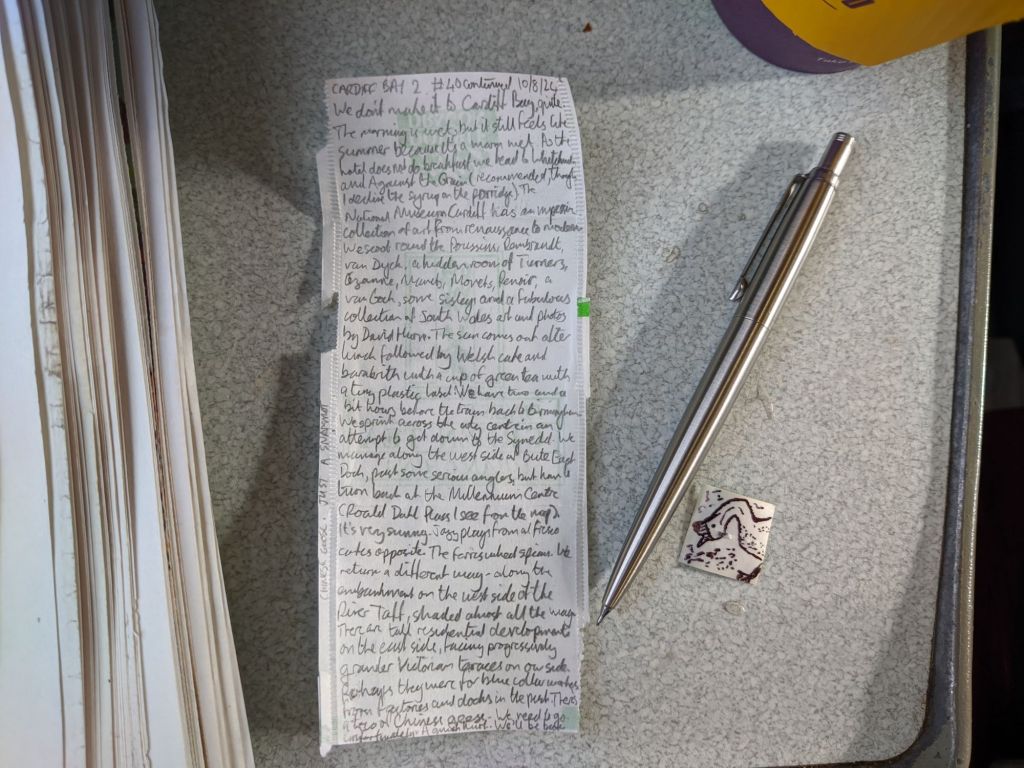 CARDIFF BAY 2 #40 continued 10/8/24
We don't make it to Cardiff Bay, quite.
The morning is wet, but it still feels like
summer because it's a warm wet. As the
hotel does not do breakfast we head to Whitchurch
and Against the Grain (recommended, though
I decline the syrup on the porridge). The
National Museum Cardiff has an impressive
collection of art from renaissance to modern.
We scoot round the Poussins, Rembrandt,
van Dyck, a hidden room of Turners,
Cezanne, Manets, Monets, Renoir, a
van Goch, some Sisley and a fabulous
collection of South Wales art and photos
by David Hurn. The sun comes out after
lunch followed by Welsh cake and
bara brith with a cup of green tea with
a tiny plastic label. We have two and a
bit hours before the train back to Birmingham.
We sprint across the city centre in an
attempt to get down to the Synedd. We
manage along the west side of Bute East
Dock, past some serious anglers, but have to
turn back at the Millennium Centre
(Roald Dahl Plass I see from the map).
It's very sunny. Jazz plays from al fresco
cafes opposite. The ferris wheel spins. We
return a different way - along the
embankment on the west side of the
River Taff, shaded almost all the way.
There are tall residential developments
on the east side, facing progressively
grander Victorian terraces on our side.
Perhaps they were for blue collar workers
from factories and docks in the past. There's
a Chinese goose. We need to go
unfortunately. A quick We'll be back
CHINESE GOOSE, JUST A SNAPSHOT
Take